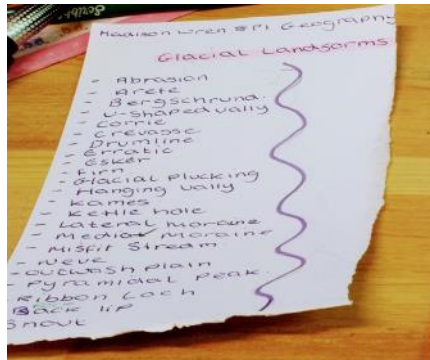 Madison Wren SP1 Geography
Glacial Landforms
- Abrasion
- Arete
- Bergschrund.
- U-shaped vally
- Corrie
- Crevasse
- Drumline
- Erratic
- Esker
- Firn
- Glacial plucking
- Hanging vally
- Kames
- Kettle hole
- Lateral Moraine
- Medial Moraine
- Misfit Stream.
- Neve
- Outwash plain
- Pyramidal peak.
Ribbon Loch
Back lip
Snout